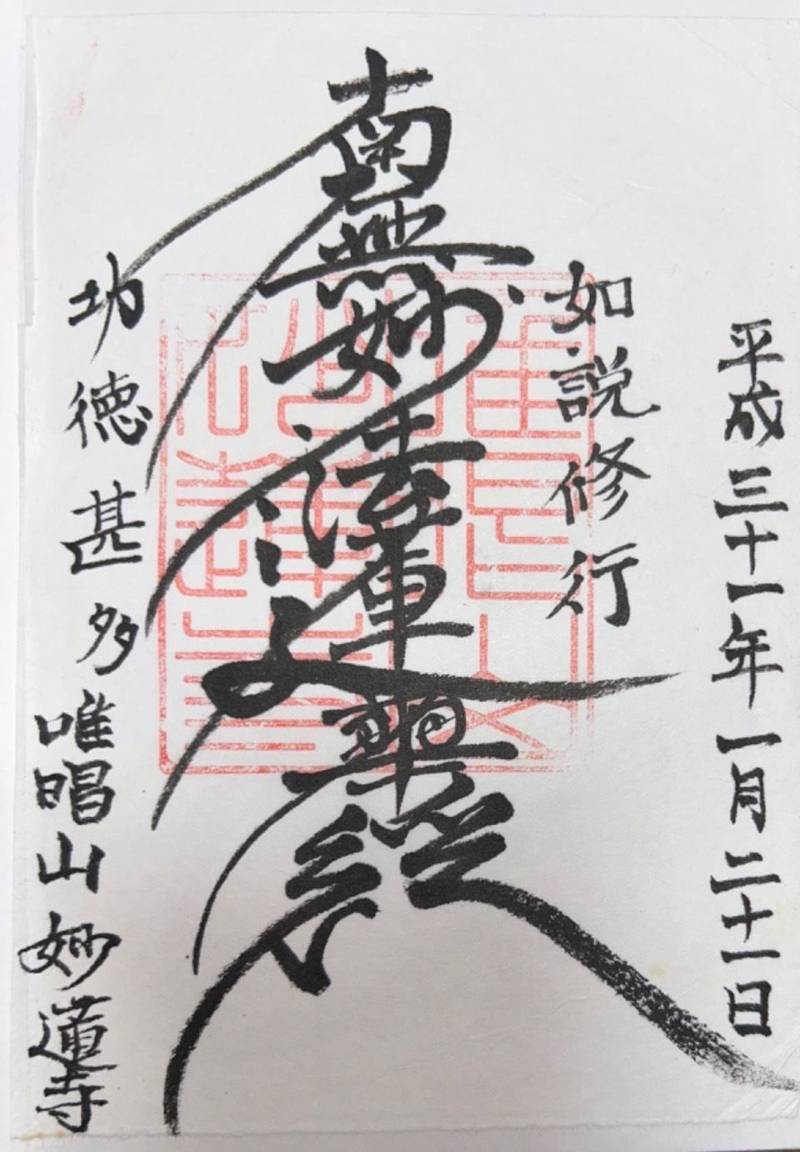 平成三十一年一月二十一日
如説修行
南無妙法蓮華経
功徳甚多
唯唱山妙蓮寺